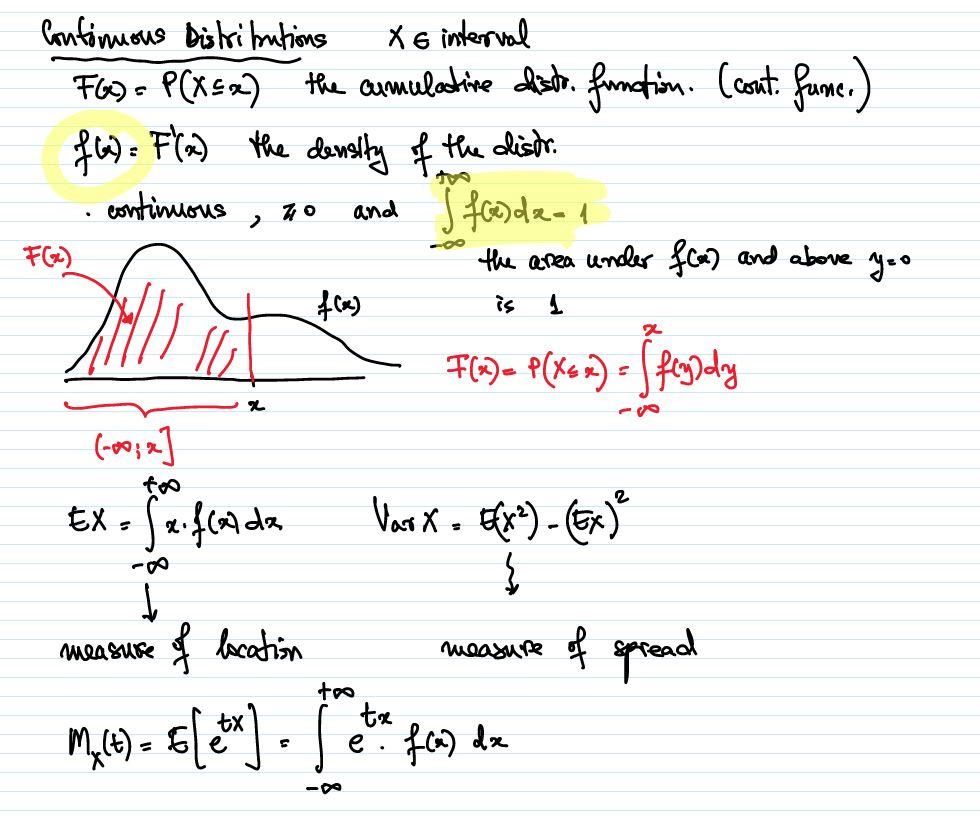 Continuous Distributions X ∈ interval
F(x) = P(X ≤ x) the cumulative distr. function. (cont. func.)
f(x) = F'(x) the density of the distr.
. continuous, ≥ 0 and ∫_{-∞}^{+∞} f(x)dx = 1
the area under f(x) and above y=0
is 1
F(x)
f(x)
F(x) = P(X ≤ x) = ∫_{-∞}^{x} f(y)dy
x
(-∞; x]
EX = ∫_{-∞}^{+∞} x·f(x) dx Var X = E(X²) - (EX)²
measure of location measure of spread
M_X(t) = E[e^{tX}] = ∫_{-∞}^{+∞} e^{tx} · f(x) dx